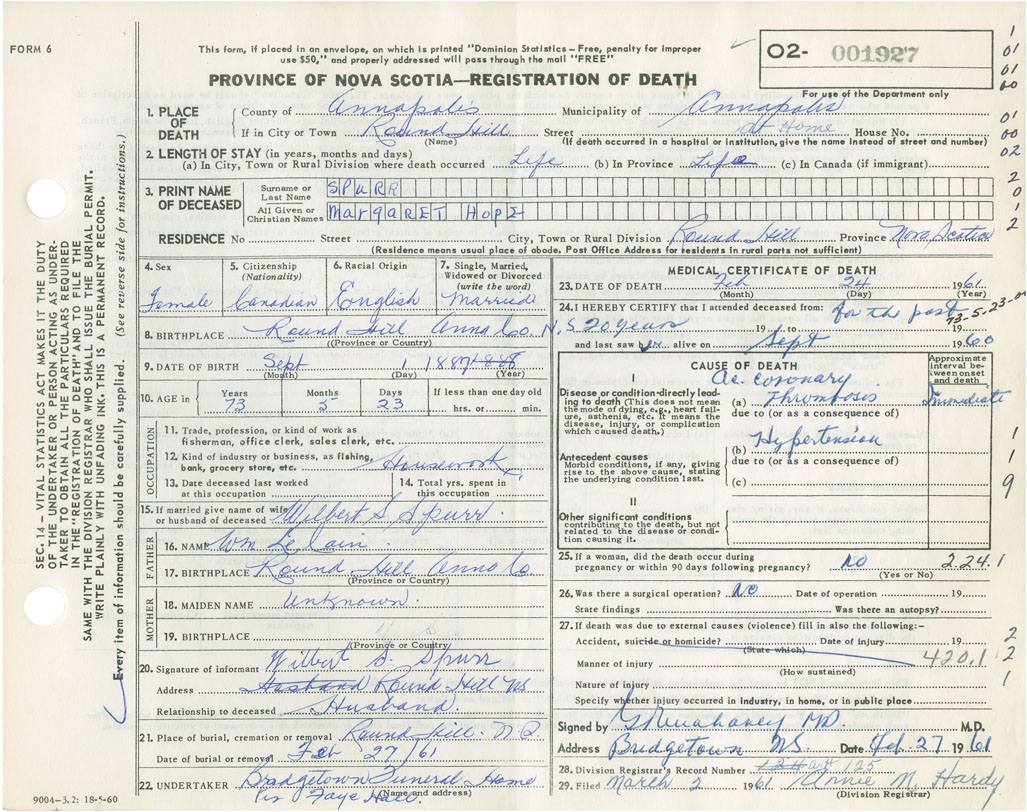 FORM 6
This form, if placed in an envelope, on which is printed "Dominion Statistics – Free, penalty for improper
use $50," and properly addressed will pass through the mail "FREE"
PROVINCE OF NOVA SCOTIA—REGISTRATION OF DEATH
O2- 001927
For use of the Department only
1. PLACE OF DEATH
County of Annapolis Municipality of Annapolis
If in City or Town Round Hill Street at Home House No.
(Name) (If death occurred in a hospital or institution, give the name instead of street and number)
2. LENGTH OF STAY (in years, months and days)
(a) In City, Town or Rural Division where death occurred Life (b) In Province Life (c) In Canada (if immigrant)
3. PRINT NAME OF DECEASED
Surname or Last Name SPURR
All Given or Christian Names MARGARET HOPE
RESIDENCE No Street City, Town or Rural Division Round Hill Province Nova Scotia
(Residence means usual place of abode. Post Office Address for residents in rural parts not sufficient)
4. Sex Female
5. Citizenship (Nationality) Canadian
6. Racial Origin English
7. Single, Married, Widowed or Divorced (write the word) Married
8. BIRTHPLACE Round Hill Anna Co. N.S.
(Province or Country)
9. DATE OF BIRTH Sept 1 1887 1888
(Month) (Day) (Year)
10. AGE in Years 73 Months 5 Days 23 If less than one day old hrs. or min.
OCCUPATION
11. Trade, profession, or kind of work as
fisherman, office clerk, sales clerk, etc.
12. Kind of industry or business, as fishing,
bank, grocery store, etc. Housework
13. Date deceased last worked
at this occupation
14. Total yrs. spent in
this occupation
15. If married give name of wife
or husband of deceased Wilbert S. Spurr
FATHER
16. NAME Wm Le Cain
17. BIRTHPLACE Round Hill Anna Co
(Province or Country)
MOTHER
18. MAIDEN NAME Unknown
19. BIRTHPLACE
(Province or Country)
20. Signature of informant Wilbert S. Spurr
Address Husband Round Hill NS
Relationship to deceased Husband.
21. Place of burial, cremation or removal Round Hill.
Date of burial or removal Feb 27/61
22. UNDERTAKER Bridgetown Funeral Home
(Name and address)
per Faye Hall.
9004-3.2: 18-5-60
MEDICAL CERTIFICATE OF DEATH
23. DATE OF DEATH Feb 24 1961
(Month) (Day) (Year)
24. I HEREBY CERTIFY that I attended deceased from: for the past
73-5-23-
20 years 19 to 19
and last saw her alive on Sept 1960
CAUSE OF DEATH
Approximate interval between onset and death
I
Disease or condition directly leading to death (This does not mean the mode of dying, e.g., heart failure, asthenia, etc. It means the disease, injury, or complication which caused death.)
Ac. coronary
(a) Thrombosis Immediate
due to (or as a consequence of)
Hypertension
Antecedent causes
Morbid conditions, if any, giving rise to the above cause, stating the underlying condition last.
(b)
due to (or as a consequence of)
(c)
II
Other significant conditions
contributing to the death, but not related to the disease or condition causing it.
25. If a woman, did the death occur during
pregnancy or within 90 days following pregnancy? No 224.1
(Yes or No)
26. Was there a surgical operation? No Date of operation 19
State findings Was there an autopsy?
27. If death was due to external causes (violence) fill in also the following:–
Accident, suicide or homicide? Date of injury 19
(State which)
Manner of injury 420.1
(How sustained)
Nature of injury
Specify whether injury occurred in industry, in home, or in public place
Signed by M.D. M.D.
Address Bridgetown NS. Date Feb. 27 1961
28. Division Registrar's Record Number 125
29. Filed March 2 1961 Annie M. Hardy
(Division Registrar)
SEC. 14 – VITAL STATISTICS ACT MAKES IT THE DUTY
OF THE UNDERTAKER OR PERSON ACTING AS UNDER-
TAKER TO OBTAIN ALL THE PARTICULARS REQUIRED
IN THE "REGISTRATION OF DEATH" AND TO FILE THE
SAME WITH THE DIVISION REGISTRAR WHO SHALL ISSUE THE BURIAL PERMIT.
WRITE PLAINLY WITH UNFADING INK. THIS IS A PERMANENT RECORD.
Every item of information should be carefully supplied. (See reverse side for instructions.)
1
01
01
00
01
00
02
2
0
1
2
1
1
9
2
2
1